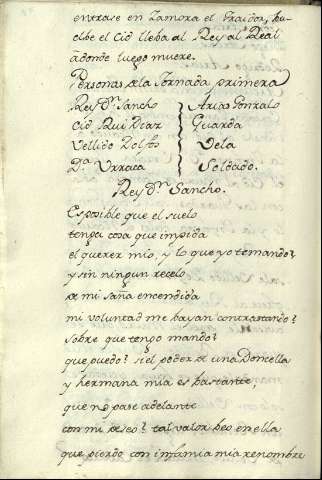 entrase en Zamora el Traidor, bu-
elbe el Cid lleba al Rey al Real
adonde luego muere.
Personas de la Jornada primera
Rey Dn. Sancho Arias Gonzalo
Cid Rui Diaz Guarda
Vellido Dolfos Vela
Da. Urraca Soldado.
Rey Dn. Sancho.
Es posible que el suelo
tenga cosa que impida
el querer mio, y lo que yo demando?
y sin ningun recelo
de mi saña encendida
mi voluntad me bayan contrastando?
sobre que tengo mando?
que puedo? si el poder de una Doncella
y hermana mia es bastante,
que no pase adelante
con mi deseo? tal valor beo en ella
que pierdo con infamia mia renombre